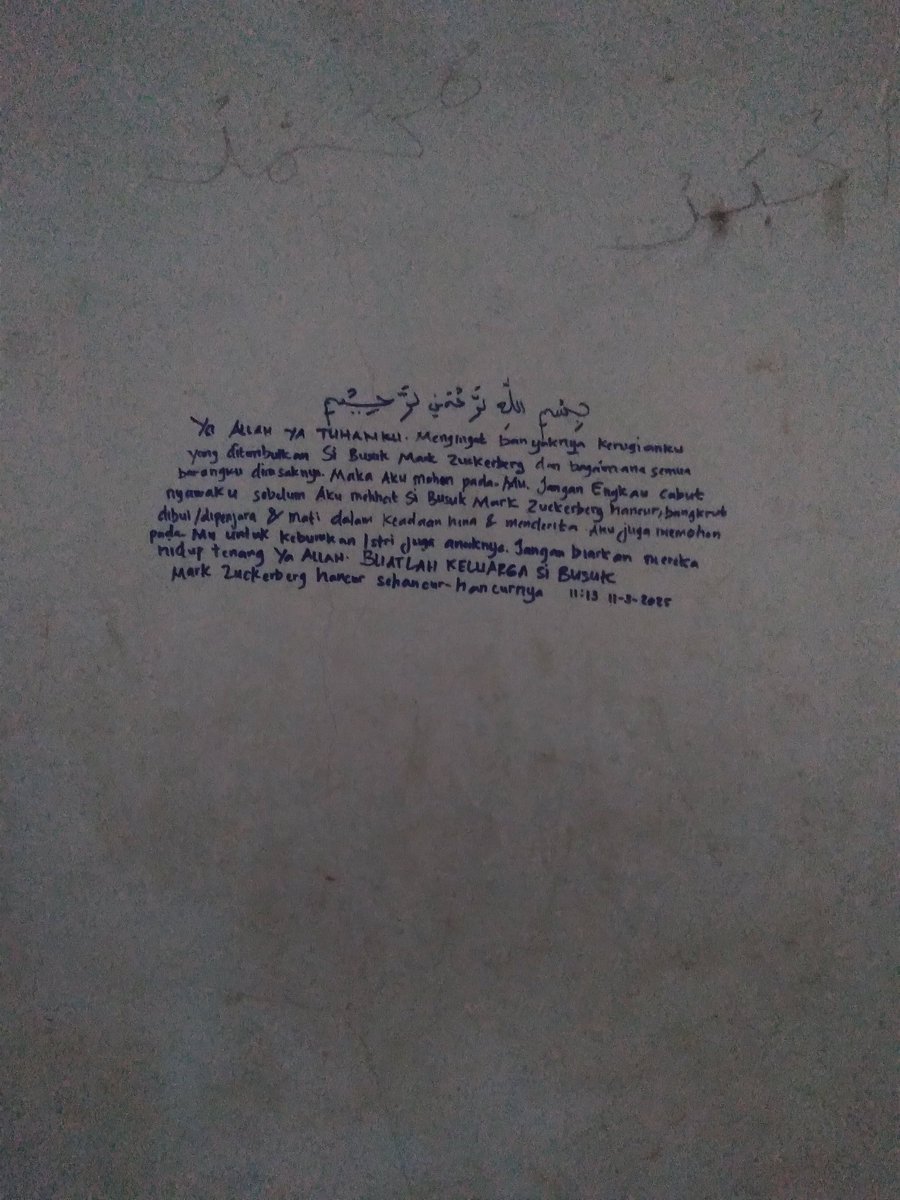 بِسْمِ اللَّهِ لرَّحْمَنِ لرَّحِيْمِ
Ya ALLAH YA TUHANKU. Mengingat banyaknya Kerugianku
yang ditimbulkan Si Busuk Mark Zuckerberg dan bagaimana semua
barangku dirusaknya. Maka Aku mohon pada-Mu. Jangan Engkau cabut
nyawaku sebelum Aku melihat Si Busuk Mark Zuckerberg hancur, bangkrut
dibui/dipenjara & mati dalam keadaan hina & menderita. Aku juga memohon
pada-Mu untuk keburukan Istri juga anaknya. Jangan biarkan mereka
hidup tenang Ya ALLAH. BUATLAH KELUARGA Si BUSUK
Mark Zuckerberg hancur sehancur-hancurnya 11:13 11-3-2025